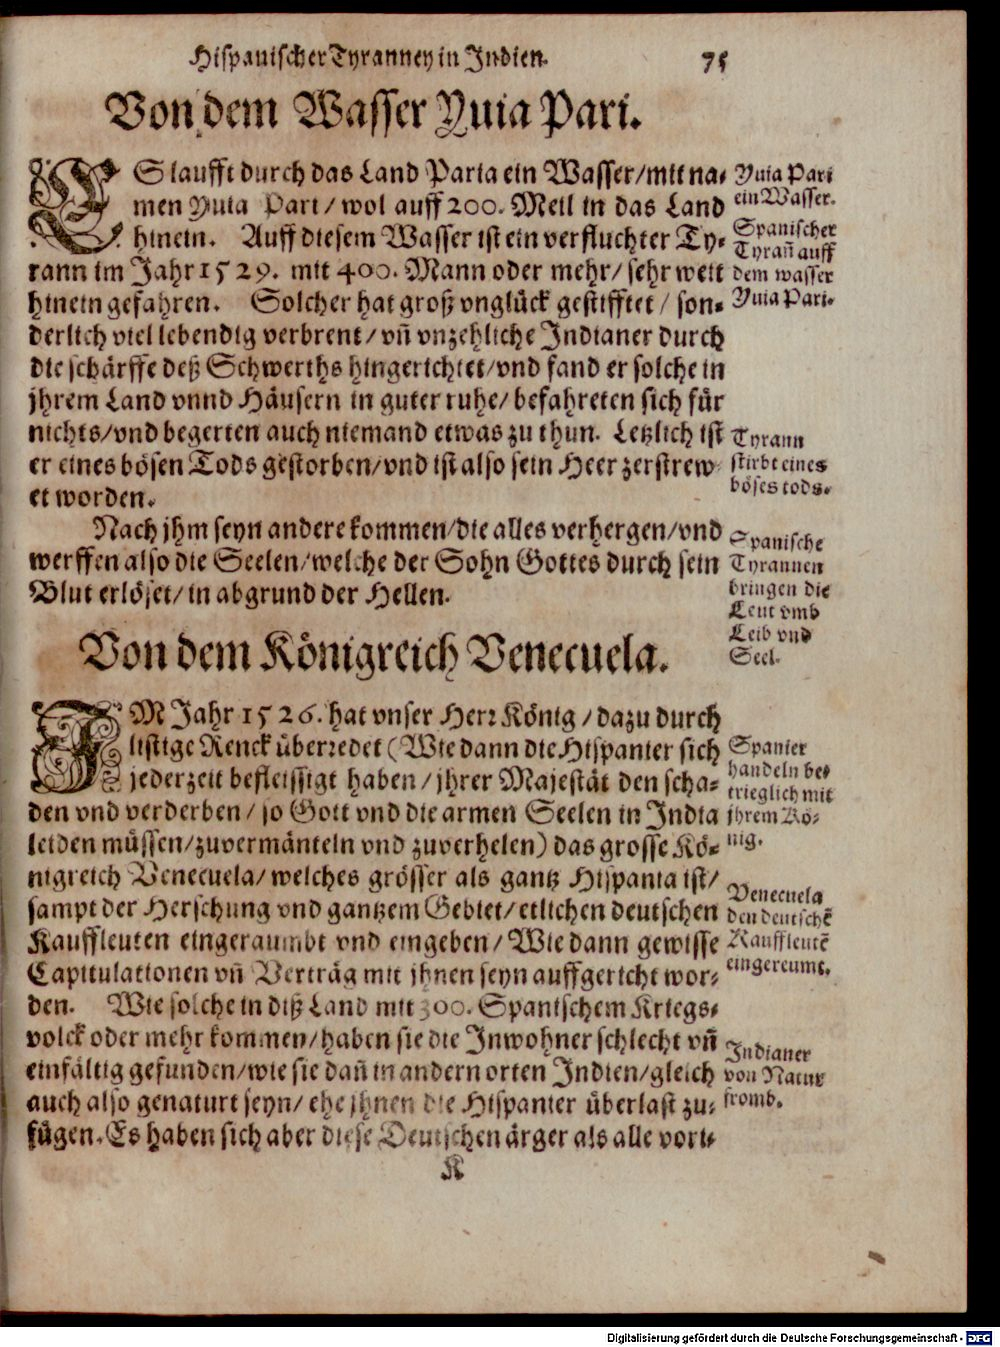 Hispanischer Tyranney in Indien. 75
Von dem Wasser Yuia Pari.
ES laufft durch das Land Paria ein Wasser/mit na-
men Yuia Pari/ wol auff 200. Meil in das Land
hinein. Auff diesem Wasser ist ein verfluchter Ty-
rann im Jahr 1529. mit 400. Mann oder mehr/ sehr weit
hinein gefahren. Solcher hat groß vnglück gestifftet/ son-
derlich viel lebendig verbrent/ vñ vnzehliche Indianer durch
die schärffe deß Schwerths hingerichtet/vnd fand er solche in
jhrem Land vnnd Häusern in guter ruhe/ befahreten sich für
nichts/vnd begerten auch niemand etwas zu thun. Letzlich ist
er eines bösen Tods gestorben/vnd ist also sein Heer zerstrew-
et worden.
Nach jhm seyn andere kommen/die alles verhergen/vnd
werffen also die Seelen/welche der Sohn Gottes durch sein
Blut erlöset/ in abgrund der Hellen.
Yuia Pari
ein Wasser.
Spanischer
Tyrañ auff
dem wasser
Yuia Pari.
Tyrann
stirbt eines
böses tods.
Spanische
Tyrannen
bringen die
Leut vmb
Leib vnd
Seel.
Von dem Königreich Venecuela.
IM Jahr 1526. hat vnser Herr König/ dazu durch
listige Renck überredet (Wie dann die Hispanier sich
jederzeit befleissigt haben/ jhrer Majestät den scha-
den vnd verderben/ so Gott vnd die armen Seelen in India
leiden müssen/zuvermänteln vnd zuverhelen) das grosse Kö-
nigreich Venecuela/ welches grösser als gantz Hispania ist/
sampt der Herschung vnd gantzem Gebiet/ etlichen deutschen
Kauffleuten eingeraumbt vnd eingeben/ Wie dann gewisse
Capitulationen vñ Verträg mit jhnen seyn auffgericht wor-
den. Wie solche in diß Land mit 300. Spanischem Kriegs-
volck oder mehr kommen/haben sie die Inwohner schlecht vñ
einfältig gefunden/wie sie dañ in andern orten Indien/gleich
auch also genaturt seyn/ ehe jhnen die Hispanier überlast zu-
fügen. Es haben sich aber diese Deutschen ärger als alle vori-
K
Spanier
handeln be-
trieglich mit
jhrem Kö-
nig.
Venecuela
den deutschẽ
Kauffleutẽ
eingereumt.
Indianer
von Natur
fromb.
Digitalisierung gefördert durch die Deutsche Forschungsgemeinschaft - DFG